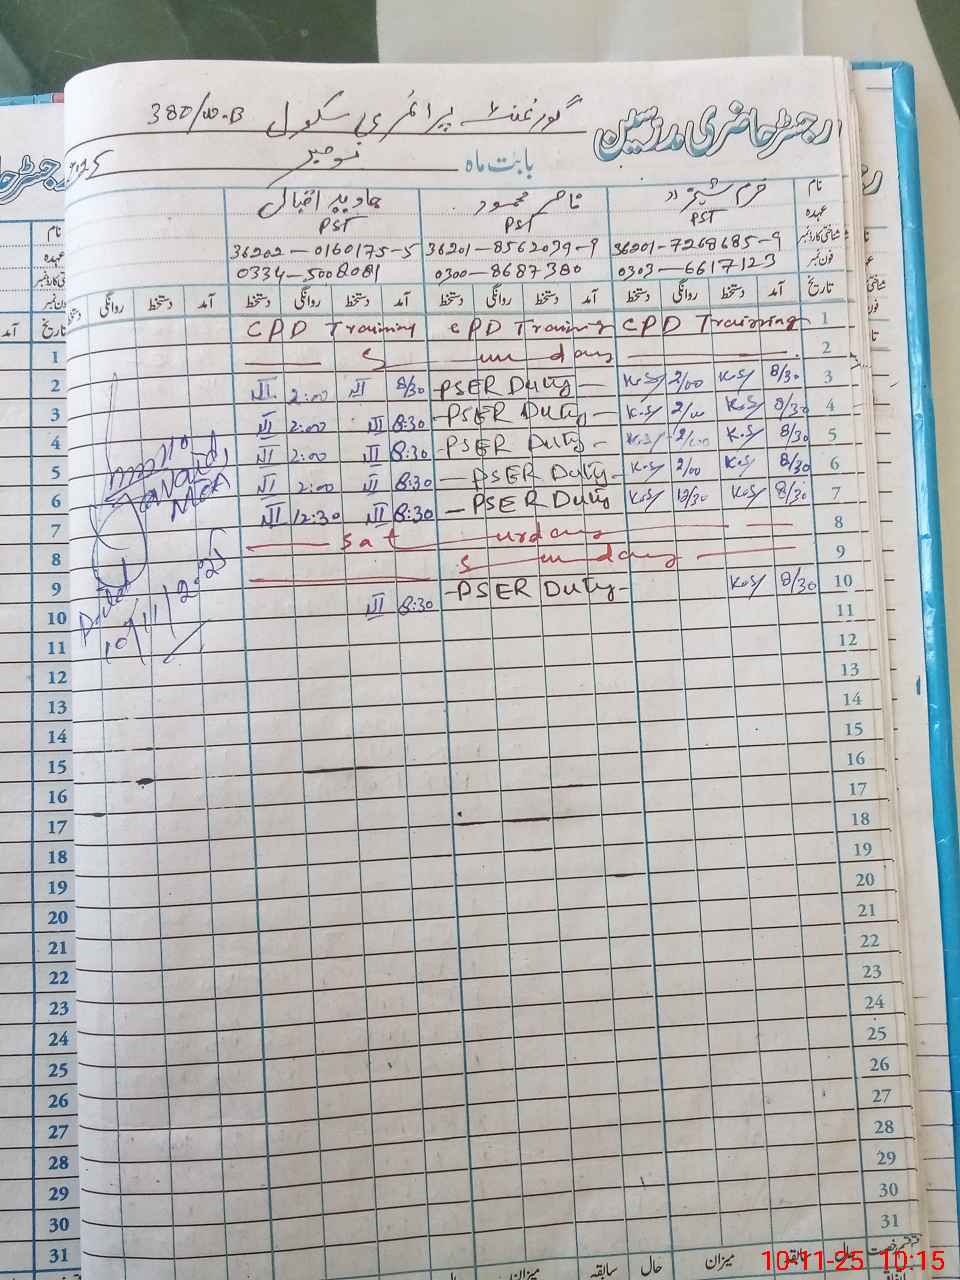 رجسٹر حاضری مدرسین گورنمنٹ پرائمری سکول 380/W-B
بابت ماہ نومبر 2025
نام خرم شہزاد ناصر محمود جاوید اقبال
عہدہ PST PST PST
شناختی کارڈ نمبر 36201-7268685-9 36201-8562039-9 36202-0160175-5
فون نمبر 0303-6617123 0300-8687380 0334-5008081
تاریخ آمد دستخط روانگی دستخط آمد دستخط روانگی دستخط آمد دستخط روانگی دستخط آمد دستخط روانگی دستخط
1 CPD Training CPD Training CPD Training
2 Sunday
3 8/30 K.S/ 2/00 K.S/ PSER Duty 8/30 JI 2:00 JI
4 8/30 K.S/ 2/00 K.S/ PSER Duty 8:30 JI 2:00 JI
5 8/30 K.S/ 2/00 K.S/ PSER Duty 8:30 JI 2:00 JI
6 8/30 K.S/ 2/00 K.S/ PSER Duty 8:30 JI 2:00 JI
7 8/30 K.S/ 12/30 K.S/ PSER Duty 8:30 JI 12:30 JI
8 Saturday
9 Sunday
10 8/30 K.S/ PSER Duty 8:30 JI
11
12
13
14
15
16
17
18
19
20
21
22
23
24
25
26
27
28
29
30
31
Dated
10/11/2025
میزان حال سابقہ میزان حال سابقہ
رجسٹر
نام
عہدہ
شناختی کارڈ نمبر
فون نمبر
تاریخ
آمد
1
2
3
4
5
6
7
8
9
10
11
12
13
14
15
16
17
18
19
20
21
22
23
24
25
26
27
28
29
30
31
10-11-25 10:15